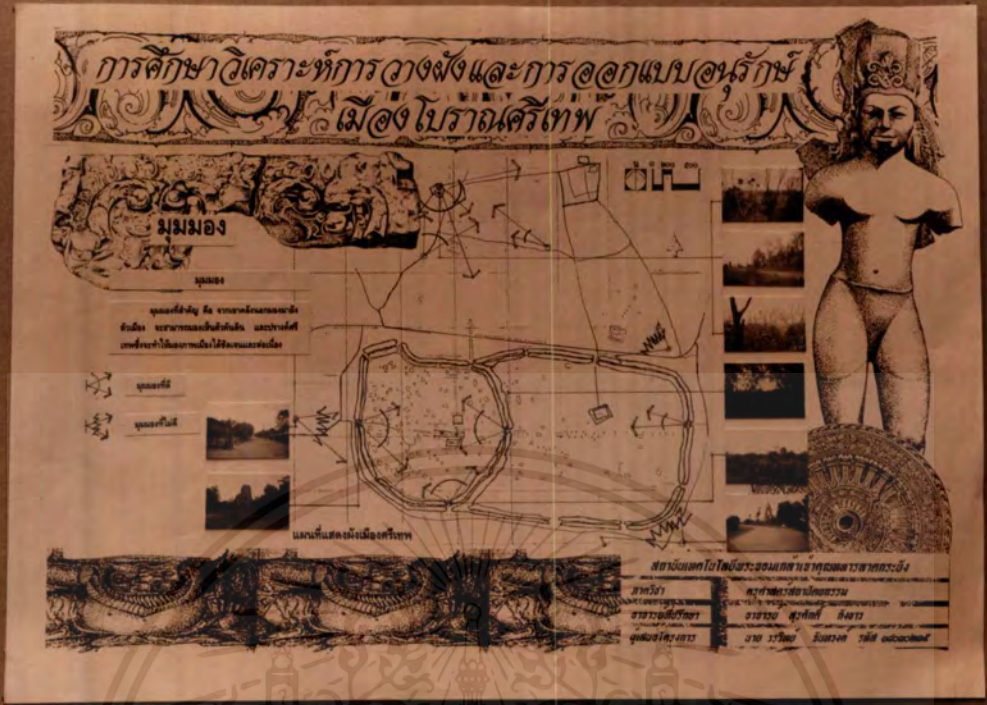 การศึกษาวิเคราะห์การวางผังและการออกแบบอนุรักษ์
เมืองโบราณศรีเทพ
มุมมอง
มุมมอง
มุมมองที่สำคัญ คือ จากเขาคลังนอกมองมายัง
ตัวเมือง จะสามารถมองเห็นคันดิน และปรางค์ศรี
เทพซึ่งจะทำให้มองภาพเมืองได้ชัดเจนและต่อเนื่อง
มุมมองที่ดี
มุมมองที่ไม่ดี
แผนที่แสดงผังเมืองศรีเทพ
สถาบันเทคโนโลยีพระจอมเกล้าเจ้าคุณทหารลาดกระบัง
ภาควิชา ครุศาสตร์สถาปัตยกรรม
อาจารย์ที่ปรึกษา อาจารย์ สุรศักดิ์
ผู้เสนอโครงการ นาย รหัส